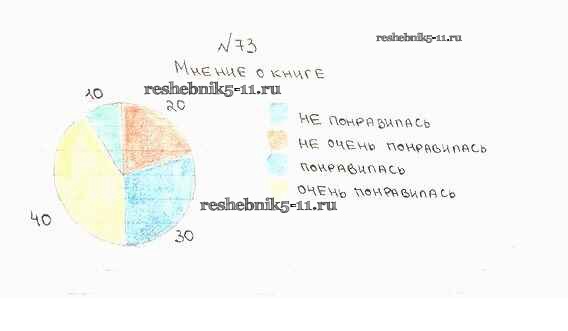 reshebnik5-11.ru
№73
Мнение о книге
reshebnik5-11.ru
10
20
не понравилась
не очень понравилась
понравилась
очень понравилась
reshebnik5-11.ru
40
30